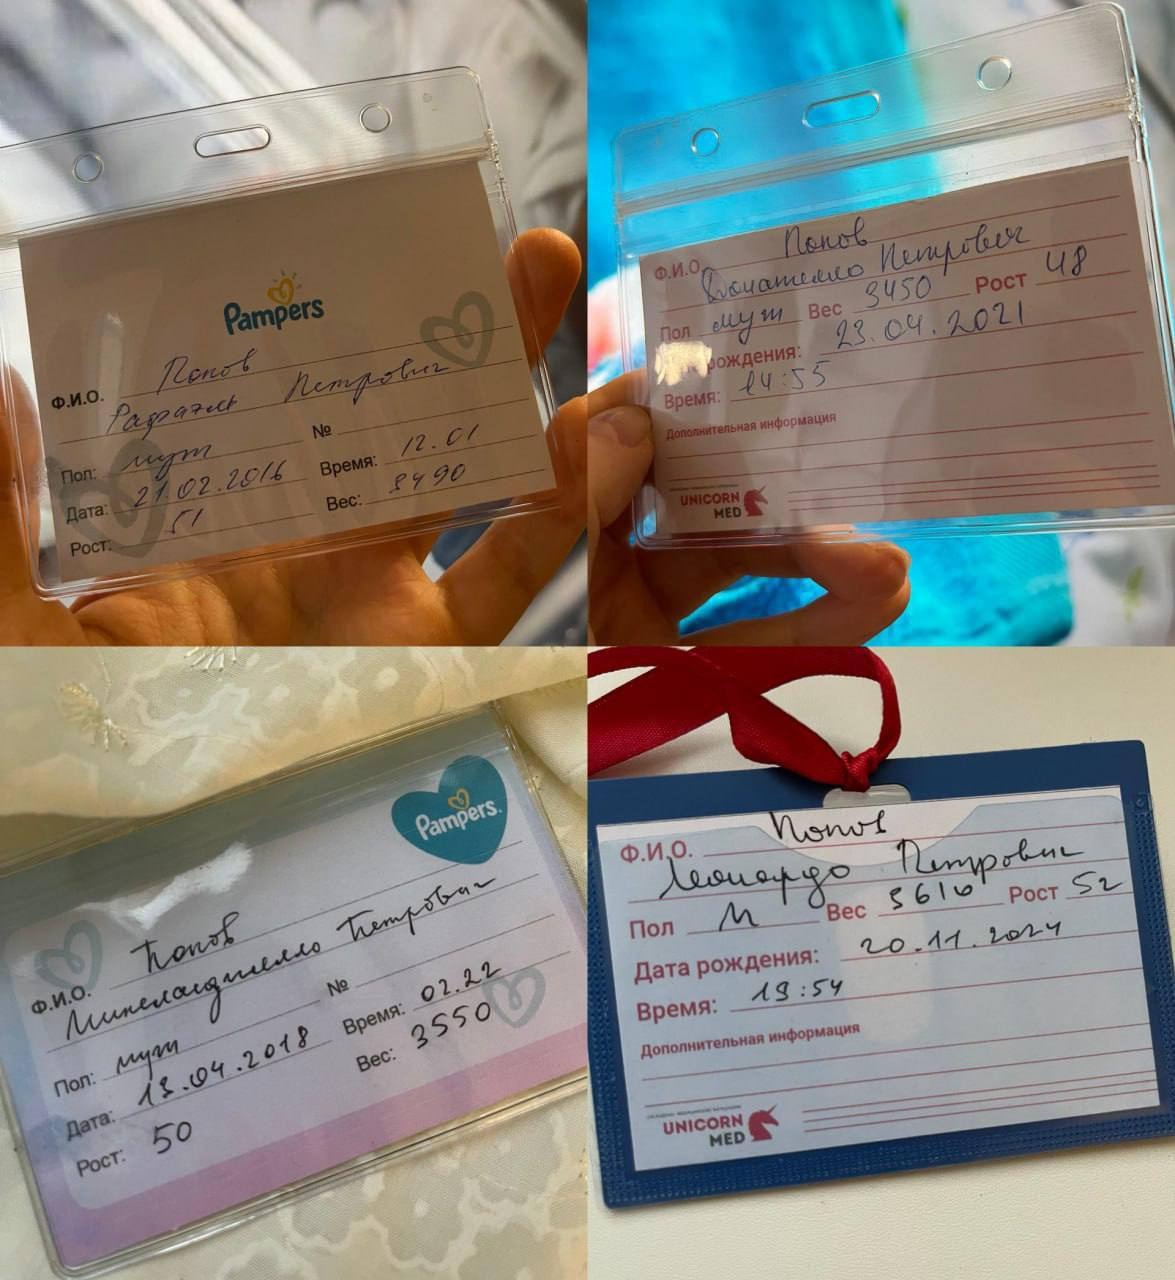 Pampers
Попов
Ф.И.О. Рафаэль Петрович
№
Пол: муж
Время: 12.01
Дата: 21.02.2016
Вес: 3490
Рост: 51
Попов
Ф.И.О. Донателло Петрович
Пол муж Вес 3450 Рост 48
рождения: 23.04.2021
Время: 14:55
Дополнительная информация
UNICORN
MED
Pampers.
Попов
Ф.И.О. Микеланджелло Петрович
№
Пол: муж
Время: 02.22
Дата: 13.04.2018
Вес: 3550
Рост: 50
Попов
Ф.И.О. Леонардо Петрович
Пол М Вес 3610 Рост 52
Дата рождения: 20.11.2024
Время: 19:54
Дополнительная информация
UNICORN
MED